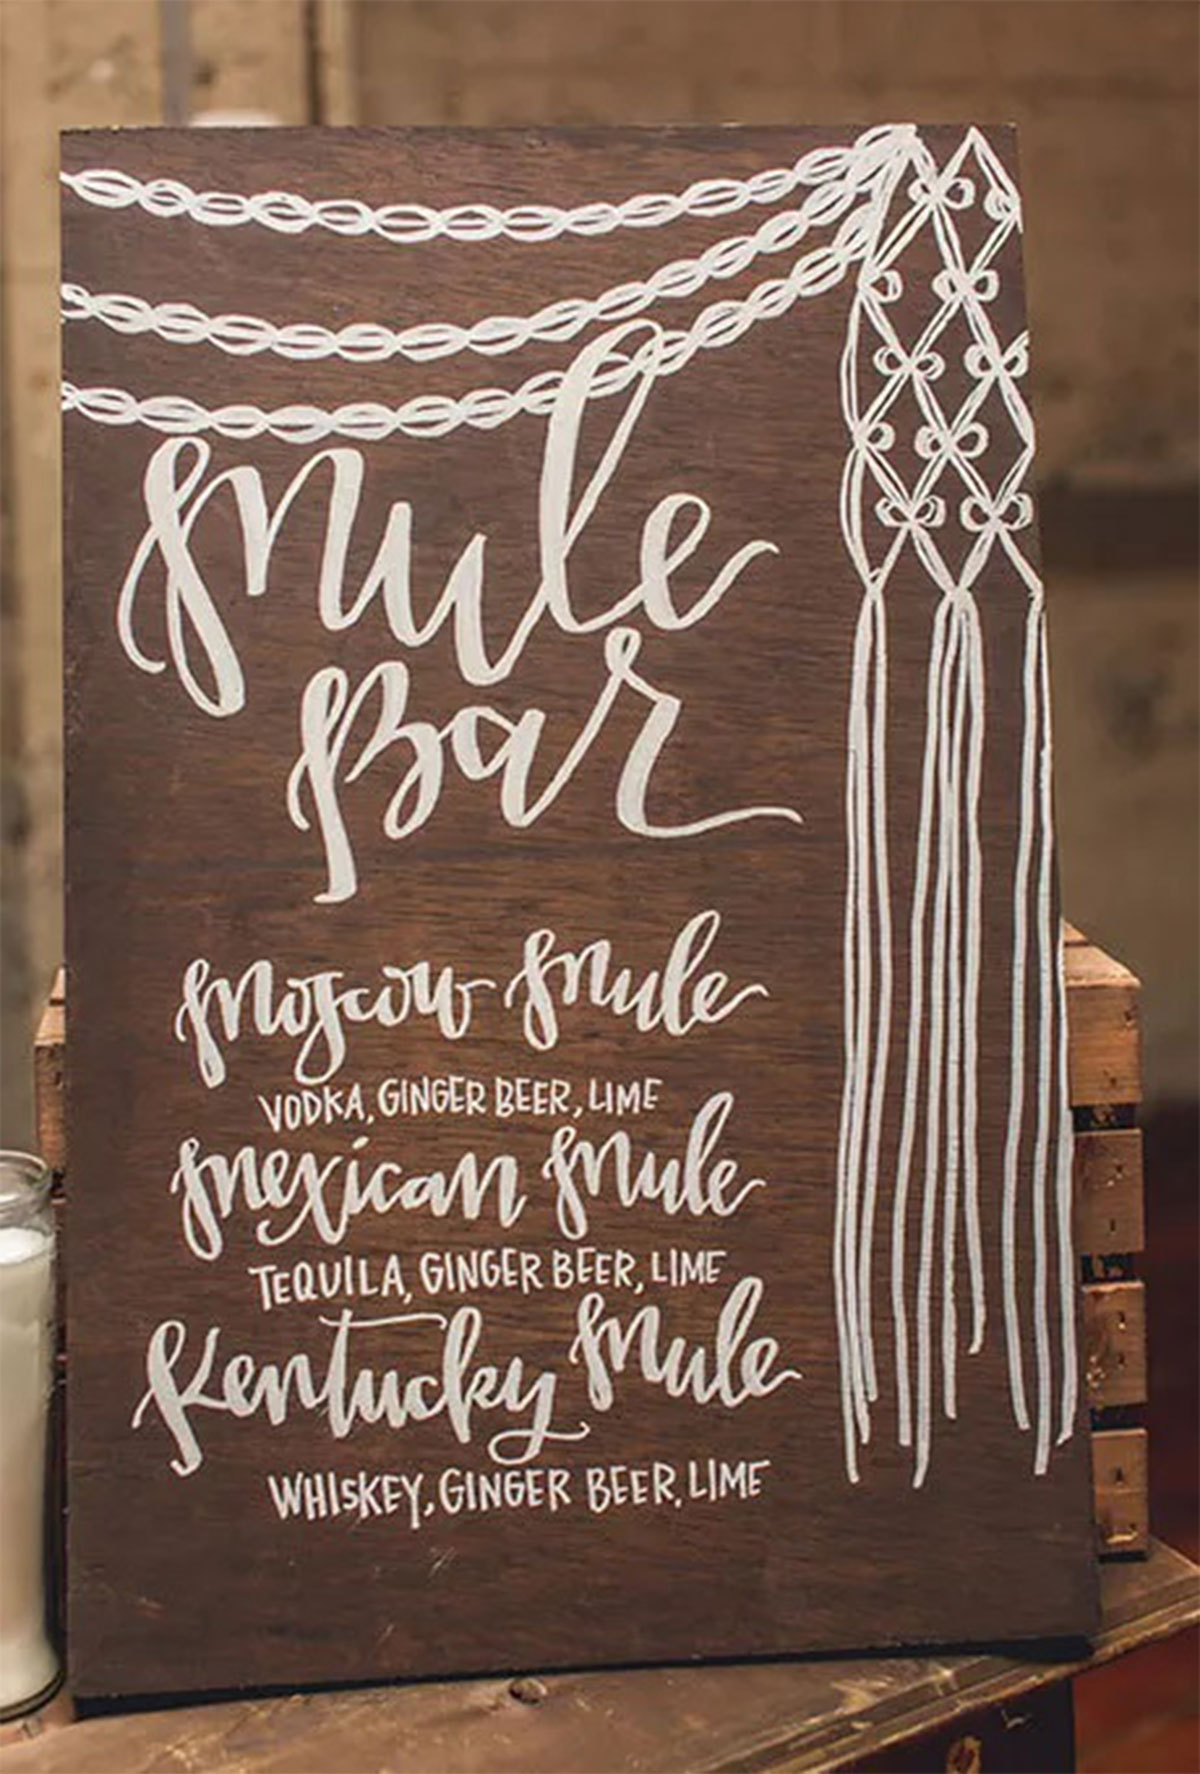 Mule
Bar
Moscow Mule
VODKA, GINGER BEER, LIME
Mexican Mule
TEQUILA, GINGER BEER, LIME
Kentucky Mule
WHISKEY, GINGER BEER, LIME